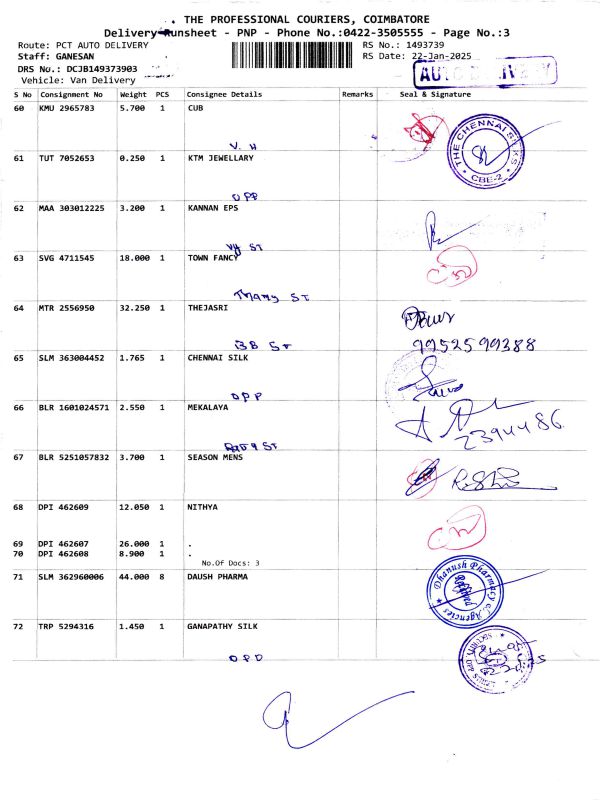 THE PROFESSIONAL COURIERS, COIMBATORE
Delivery Runsheet - PNP - Phone No.:0422-3505555 - Page No.:3
Route: PCT AUTO DELIVERY RS No.: 1493739
Staff: GANESAN RS Date: 22-Jan-2025
DRS No.: DCJB149373903
Vehicle: Van Delivery
AUTO DELIVERY
S No Consignment No Weight PCS Consignee Details Remarks Seal & Signature
60 KMU 2965783 5.700 1 CUB
V. H
THE CHENNAI SILKS
CBE-2
61 TUT 7052653 0.250 1 KTM JEWELLARY
OPP
62 MAA 303012225 3.200 1 KANNAN EPS
VH ST
63 SVG 4711545 18.000 1 TOWN FANCY
Thamy ST
64 MTR 2556950 32.250 1 THEJASRI
BB ST
9952599388
65 SLM 363004452 1.765 1 CHENNAI SILK
OPP
66 BLR 1601024571 2.550 1 MEKALAYA
2394486
67 BLR 5251057832 3.700 1 SEASON MENS
68 DPI 462609 12.050 1 NITHYA
69 DPI 462607 26.000 1 .
70 DPI 462608 8.900 1 .
No.Of Docs: 3
71 SLM 362960006 44.000 8 DAUSH PHARMA
Dhanush Pharmacy Agencies
72 TRP 5294316 1.450 1 GANAPATHY SILK
OPP